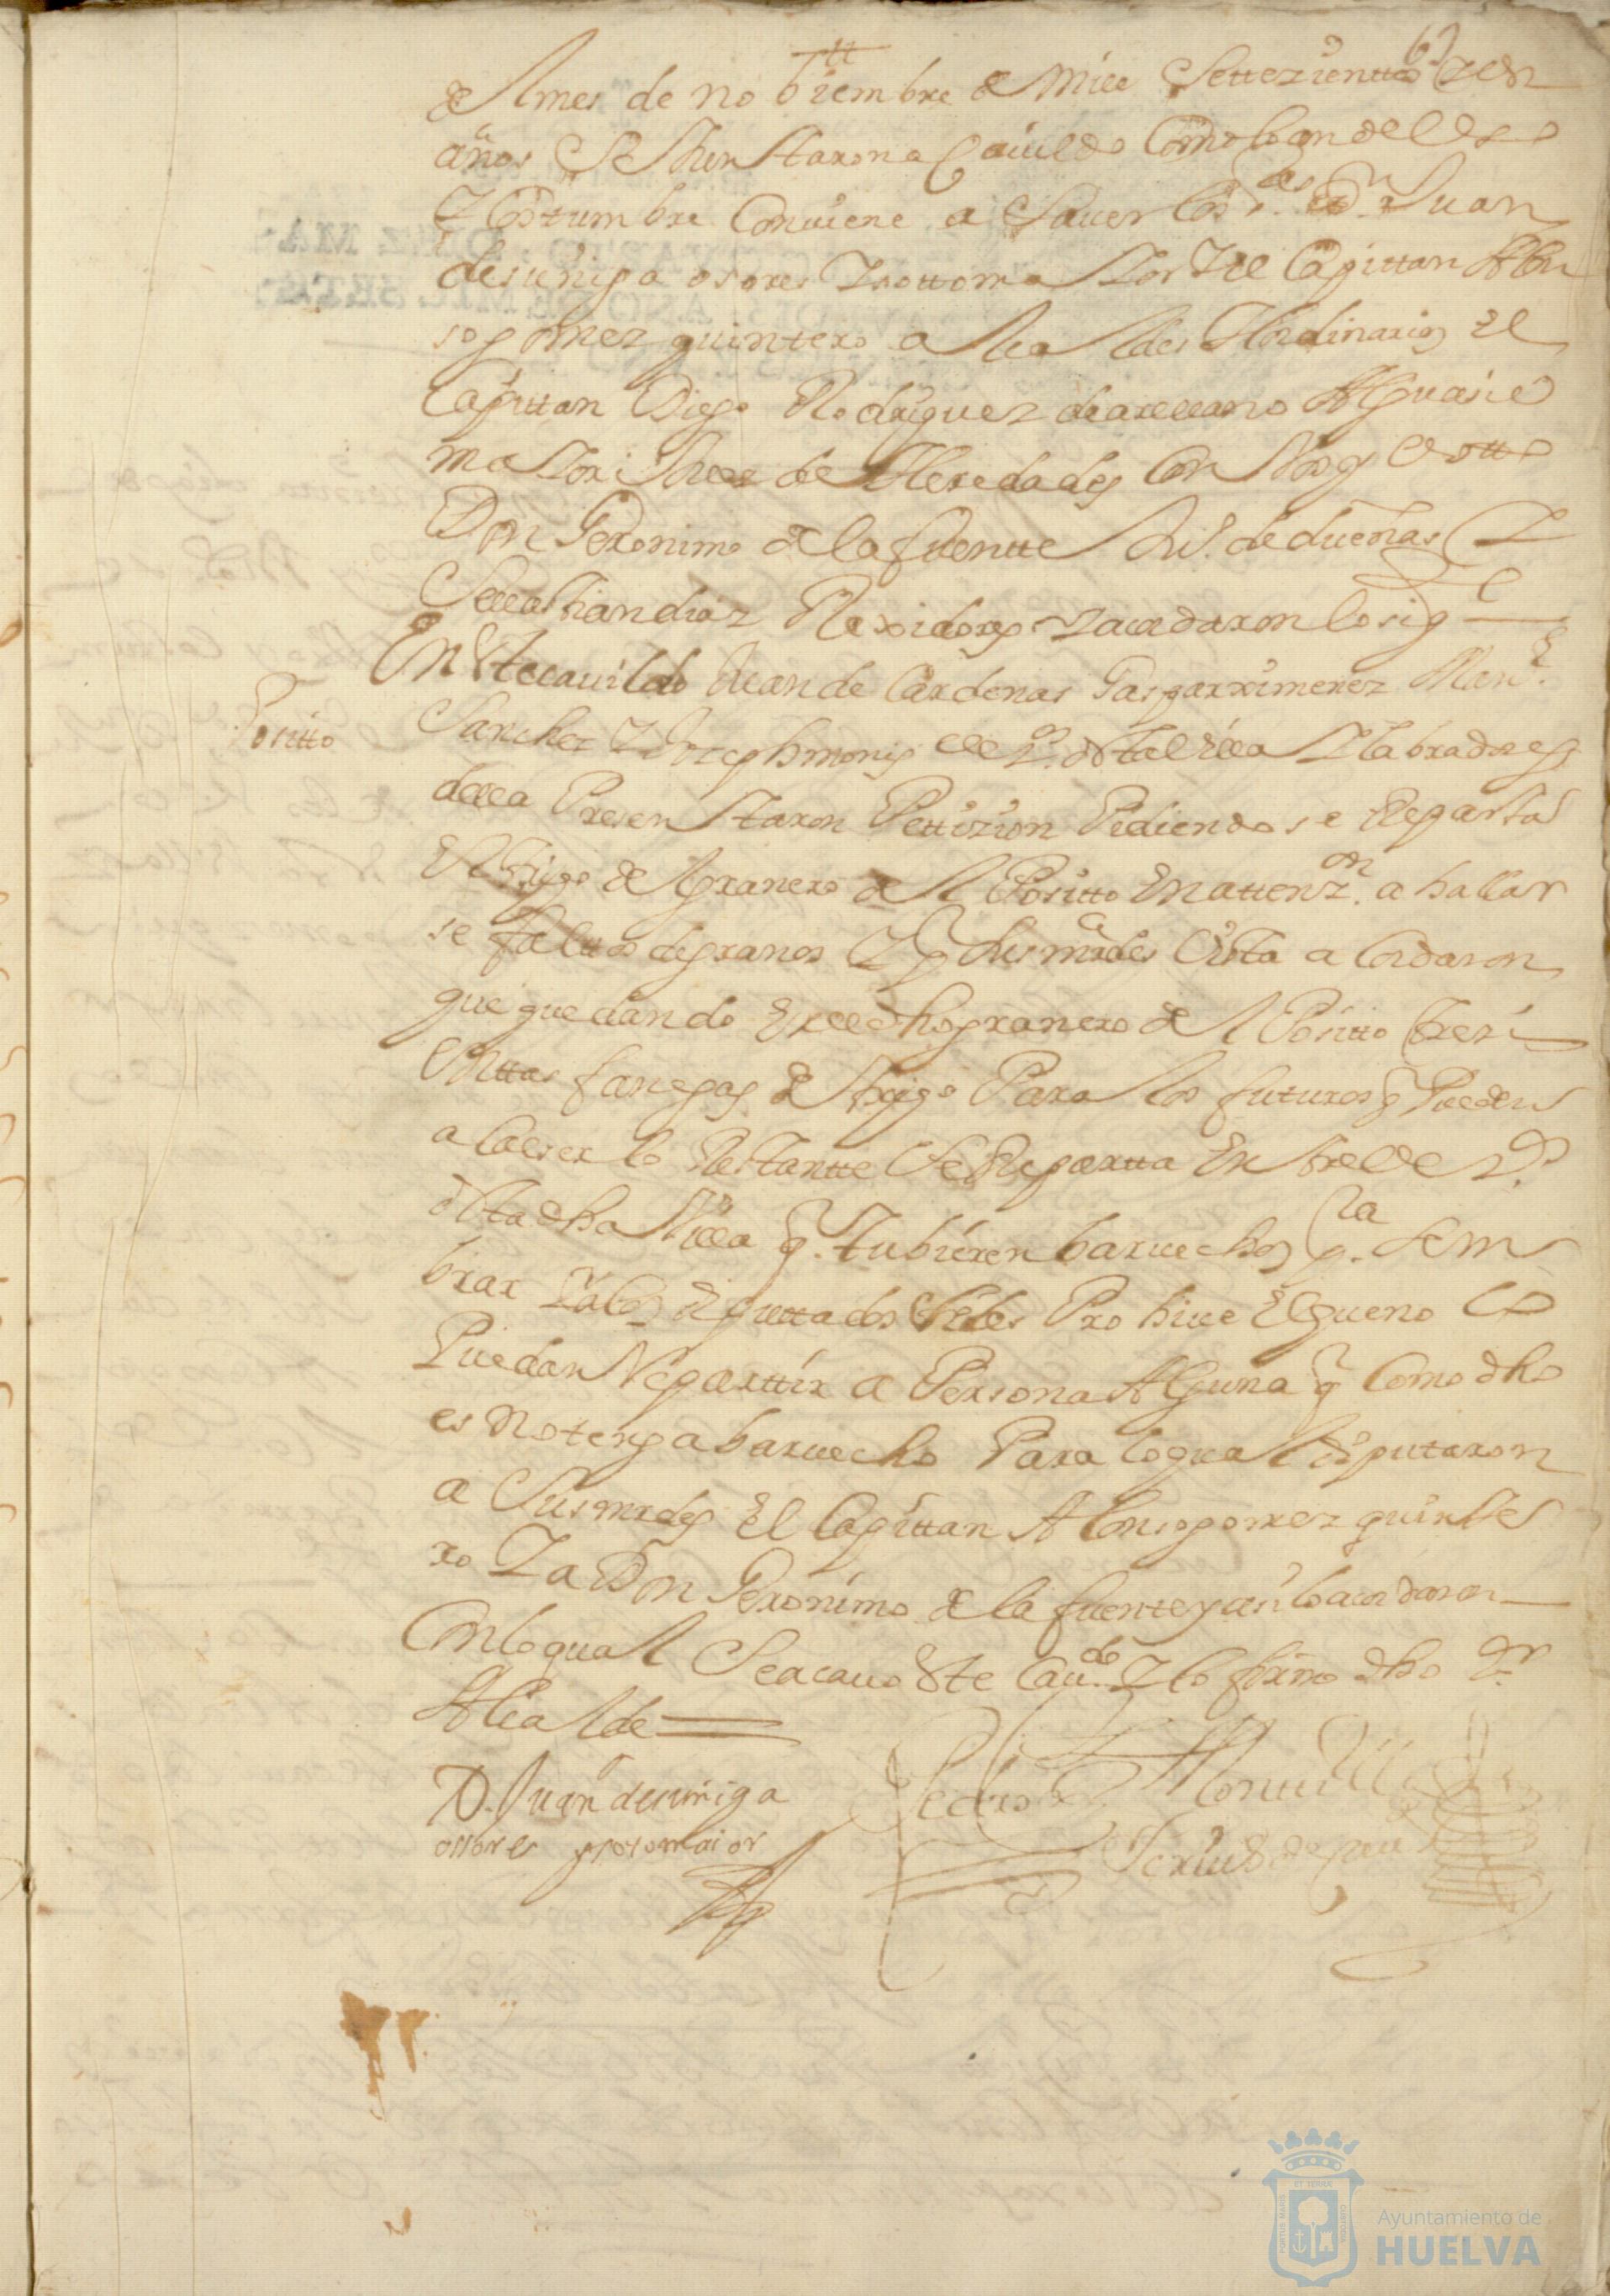 del mes de nobiembre de mill settezienttos y un
años se Juntaron a Cauildo Como lo an del Uso
y Costumbre Conuiene a Sauer los Sres. Dn. Juan
de suñiga osores y sottomaior y el Capittan Alon
so gomez quintero alcaldes Hordinarios El
Capittan Diego Rodriguez de arellano Alguasil
maior i Juez de Heredades Con Voz y Votto
Don Geronimo de la fuentte Luis de dueñas y
Seuastian diaz Rexidores y acordaron lo sigte
En Este cauildo Juan de Cardenas Gaspar ximenez Manl.
Positto
Sanchez y Joseph monis vesos. de Esta Villa y labradores
della Presentaron Pettizion Pidiendo se Reparta
El trigo del granero del Positto En attenzon. a hallar
se faltos de granos y por sus mrdes Vista acordaron
que quedando En el dho granero del Positto trezi
enttas fanegas de trigo Para los futuros que Pueden
acaeser lo Restantte se Repartta Entre los vos.
de Esta dha Villa q. tubieren baruechos pa. sem
brar y a los diputtados se les Prohiue El que no lo
Puedan Reparttir a Persona Alguna q Como dho
es no tenga baruecho Para lo qual diputaron
a Sus mrdes El Capittan Alonso gomez quinte
ro y a Don Geronimo de la fuente y asi lo acordaron
Con lo qual Se acauo Este Caudo. y lo firmo dho Sr.
Alcalde
D. Juan de suñiga
ossores y sotomaior
Pedro